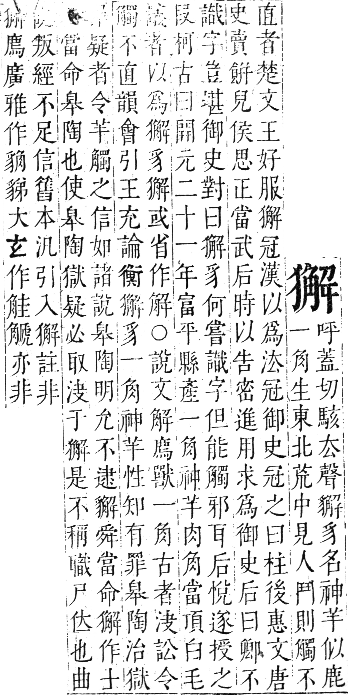 獬
呼蓋切駭厺聲獬豸名神羊似鹿
一角生東北荒中見人鬥則觸不
直者楚文王好服獬冠漢以爲法冠御史冠之曰柱後惠文唐
史賣餅兒侯思正當武后時以告密進用求爲御史后曰卿不
識字豈堪御史對曰獬豸何嘗識字但能觸邪耳后悅遂授之
段柯古曰開元二十一年富平縣產一角神羊肉角當頂白毛
議者以爲獬豸或省作解○說文解廌獸一角古者決訟令
觸不直韻會引王充論衡獬豸一角神羊性知有罪皋陶治獄
疑者令羊觸之信如諸說皋陶明允不逮獬舜當命獬作士
當命皋陶也使皋陶獄疑必取決于獬是不稱職尸位也曲
說叛經不足信舊本汎引入獬註非
獬廌廣雅作大玄作觟䚦亦非